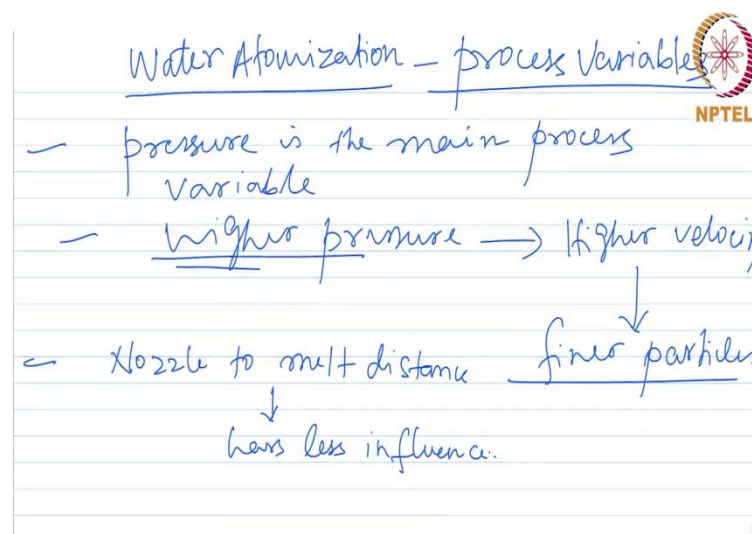 Water Atomization - process Variables
NPTEL
- pressure is the main process
variable
- Higher pressure → Higher veloci
- Nozzle to melt distance finer particles
↓
has less influence.